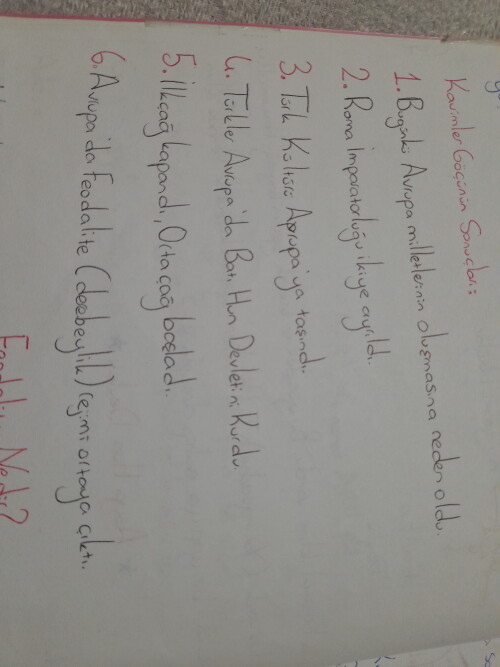 Kavimler Göçünün Sonuçları:
1. Bugünkü Avrupa milletlerinin oluşmasına neden oldu.
2. Roma İmparatorluğu ikiye ayrıldı.
3. Türk Kültürü Avrupa'ya taşındı.
4. Türkler Avrupa'da Batı Hun Devletini Kurdu.
5. İlkçağ kapandı, Ortaçağ başladı.
6. Avrupa'da Feodalite (derebeylik) rejimi ortaya çıktı.
Feodalite Nedir?